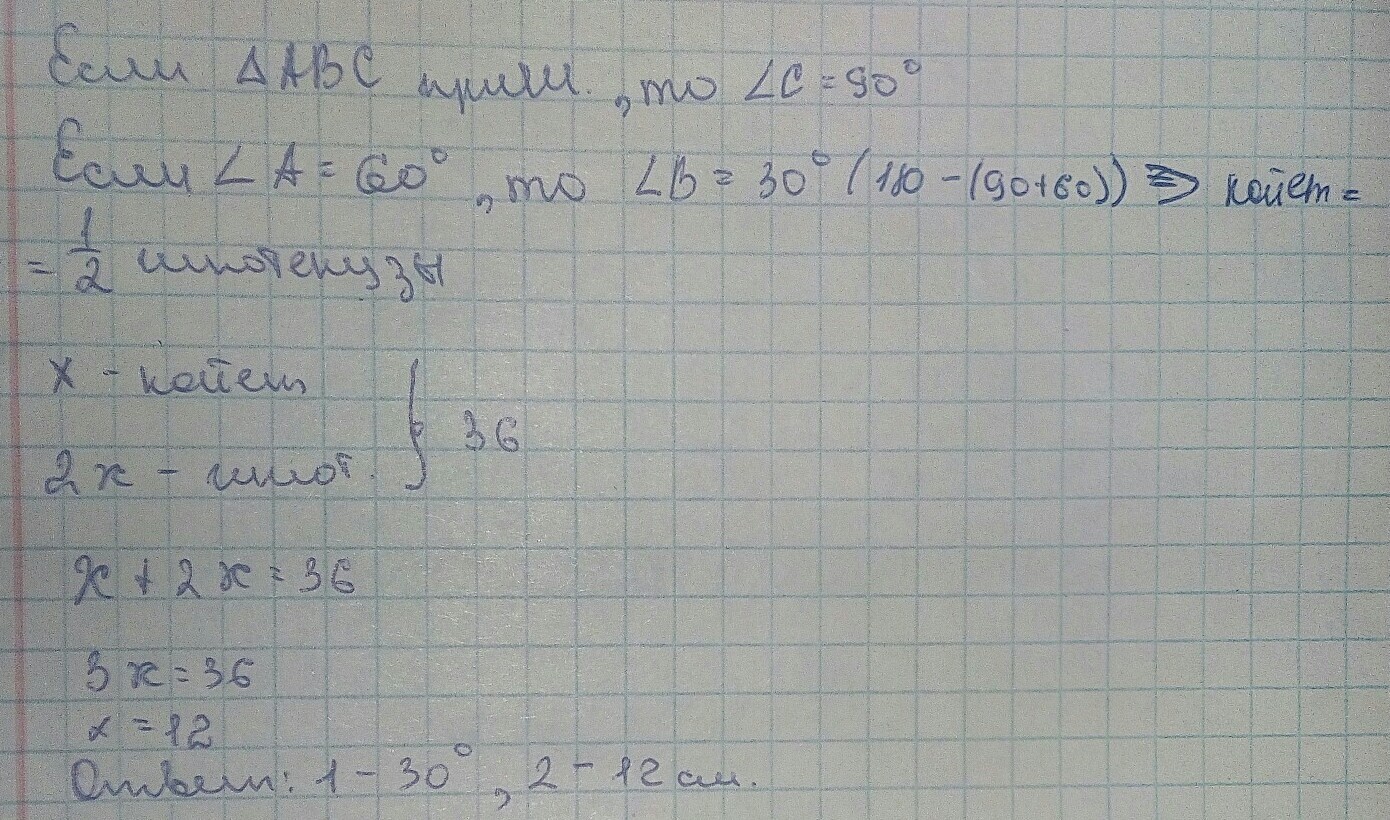 Если ΔABC прям., то ∠C = 90°
Если ∠A = 60°, то ∠B = 30° (180 - (90+60)) => катет =
= 1/2 гипотенузы
x - катет
2x - гипот. } 36
x + 2x = 36
3x = 36
x = 12
Ответ: 1 - 30°, 2 - 12 см.